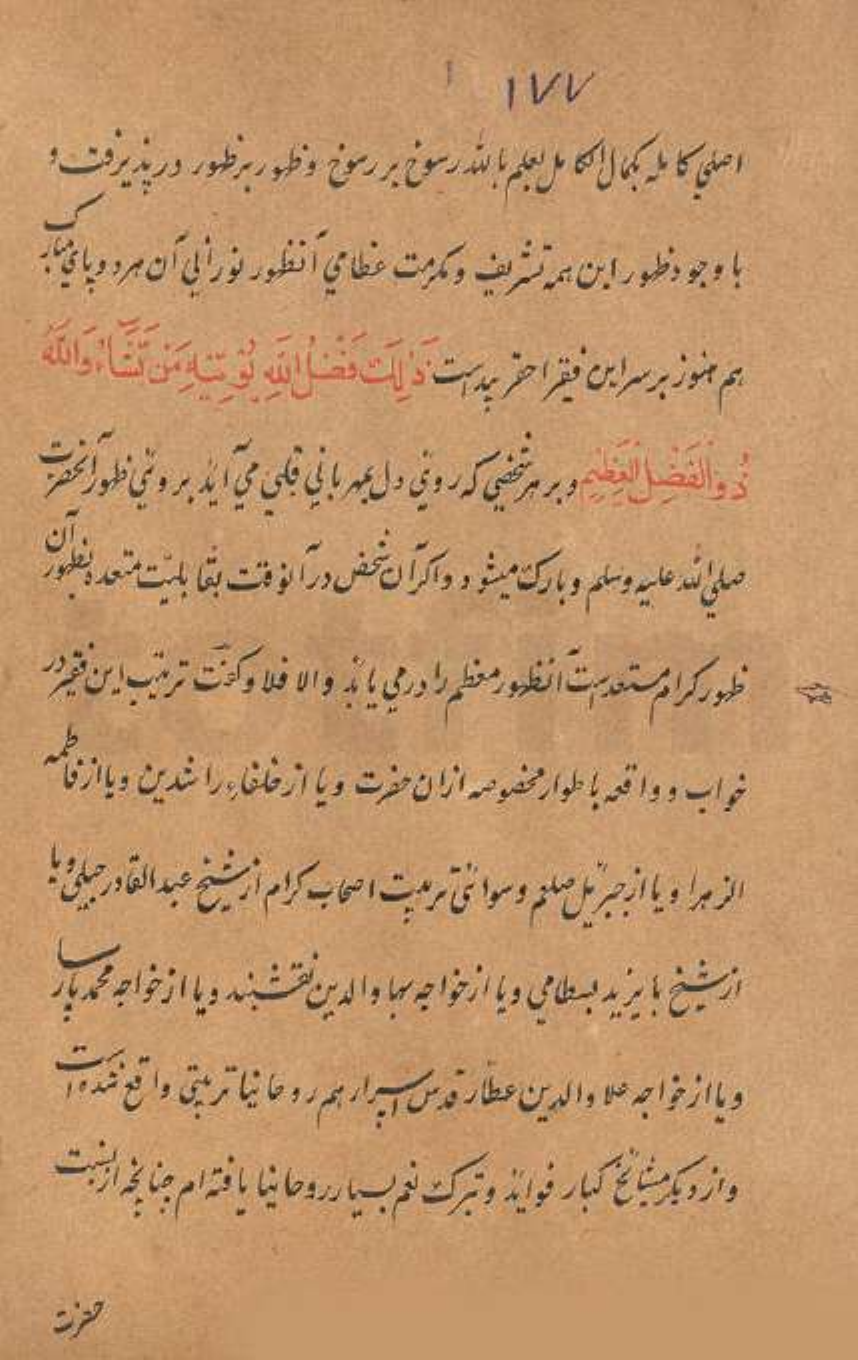 ١٧٧
اصلي كامله بكمال الكامل لعلم بالله رسوخ بر رسوخ وظهور بر ظهور در پذيرفت و
با وجود ظهور اين همه تشريف و مكرمت عظامي آنظهور نوراني آن هر دو پاي مبارك
هم هنوز بر سر اين فقير احقر پيداست ذَلِكَ فَضْلُ اللهِ يُؤتِيهِ مَن تَشَاءُ وَاللهُ
ذُو الفَضْلِ العَظِيمِ و بر هر شخصي كه روئي دل بمهرباني قلبي مي آيد بر وئي ظهور آنحضرت
صلي الله عليه وسلم و بارك ميشود و اكر آن شخص در آنوقت بقابليت متعده بظهور آن
ظهور كرام مستعد است آنظهور معظم را در مي يابد والا فلا و تربيت اين فقير در
خواب و واقعه باطوار مخصوصه ازان حضرت و يا از خلفاء راشدين و يا از فاطمه
الزهرا و يا از جبرئيل صلعم و سوائي تربيت اصحاب كرام از شيخ عبد القادر جيلي و يا
از شيخ بايزيد بسطامي و يا از خواجه بهاوالدين نقشبند و يا از خواجه محمد پارسا
و يا از خواجه علاوالدين عطار قدس اسرار هم روحانيا تربيتي واقع شده است
و از ديكر مشائخ كبار فوايد و تبرك نعم بسيار روحانيا يافته ام چنانچه از نسبت
حضرت